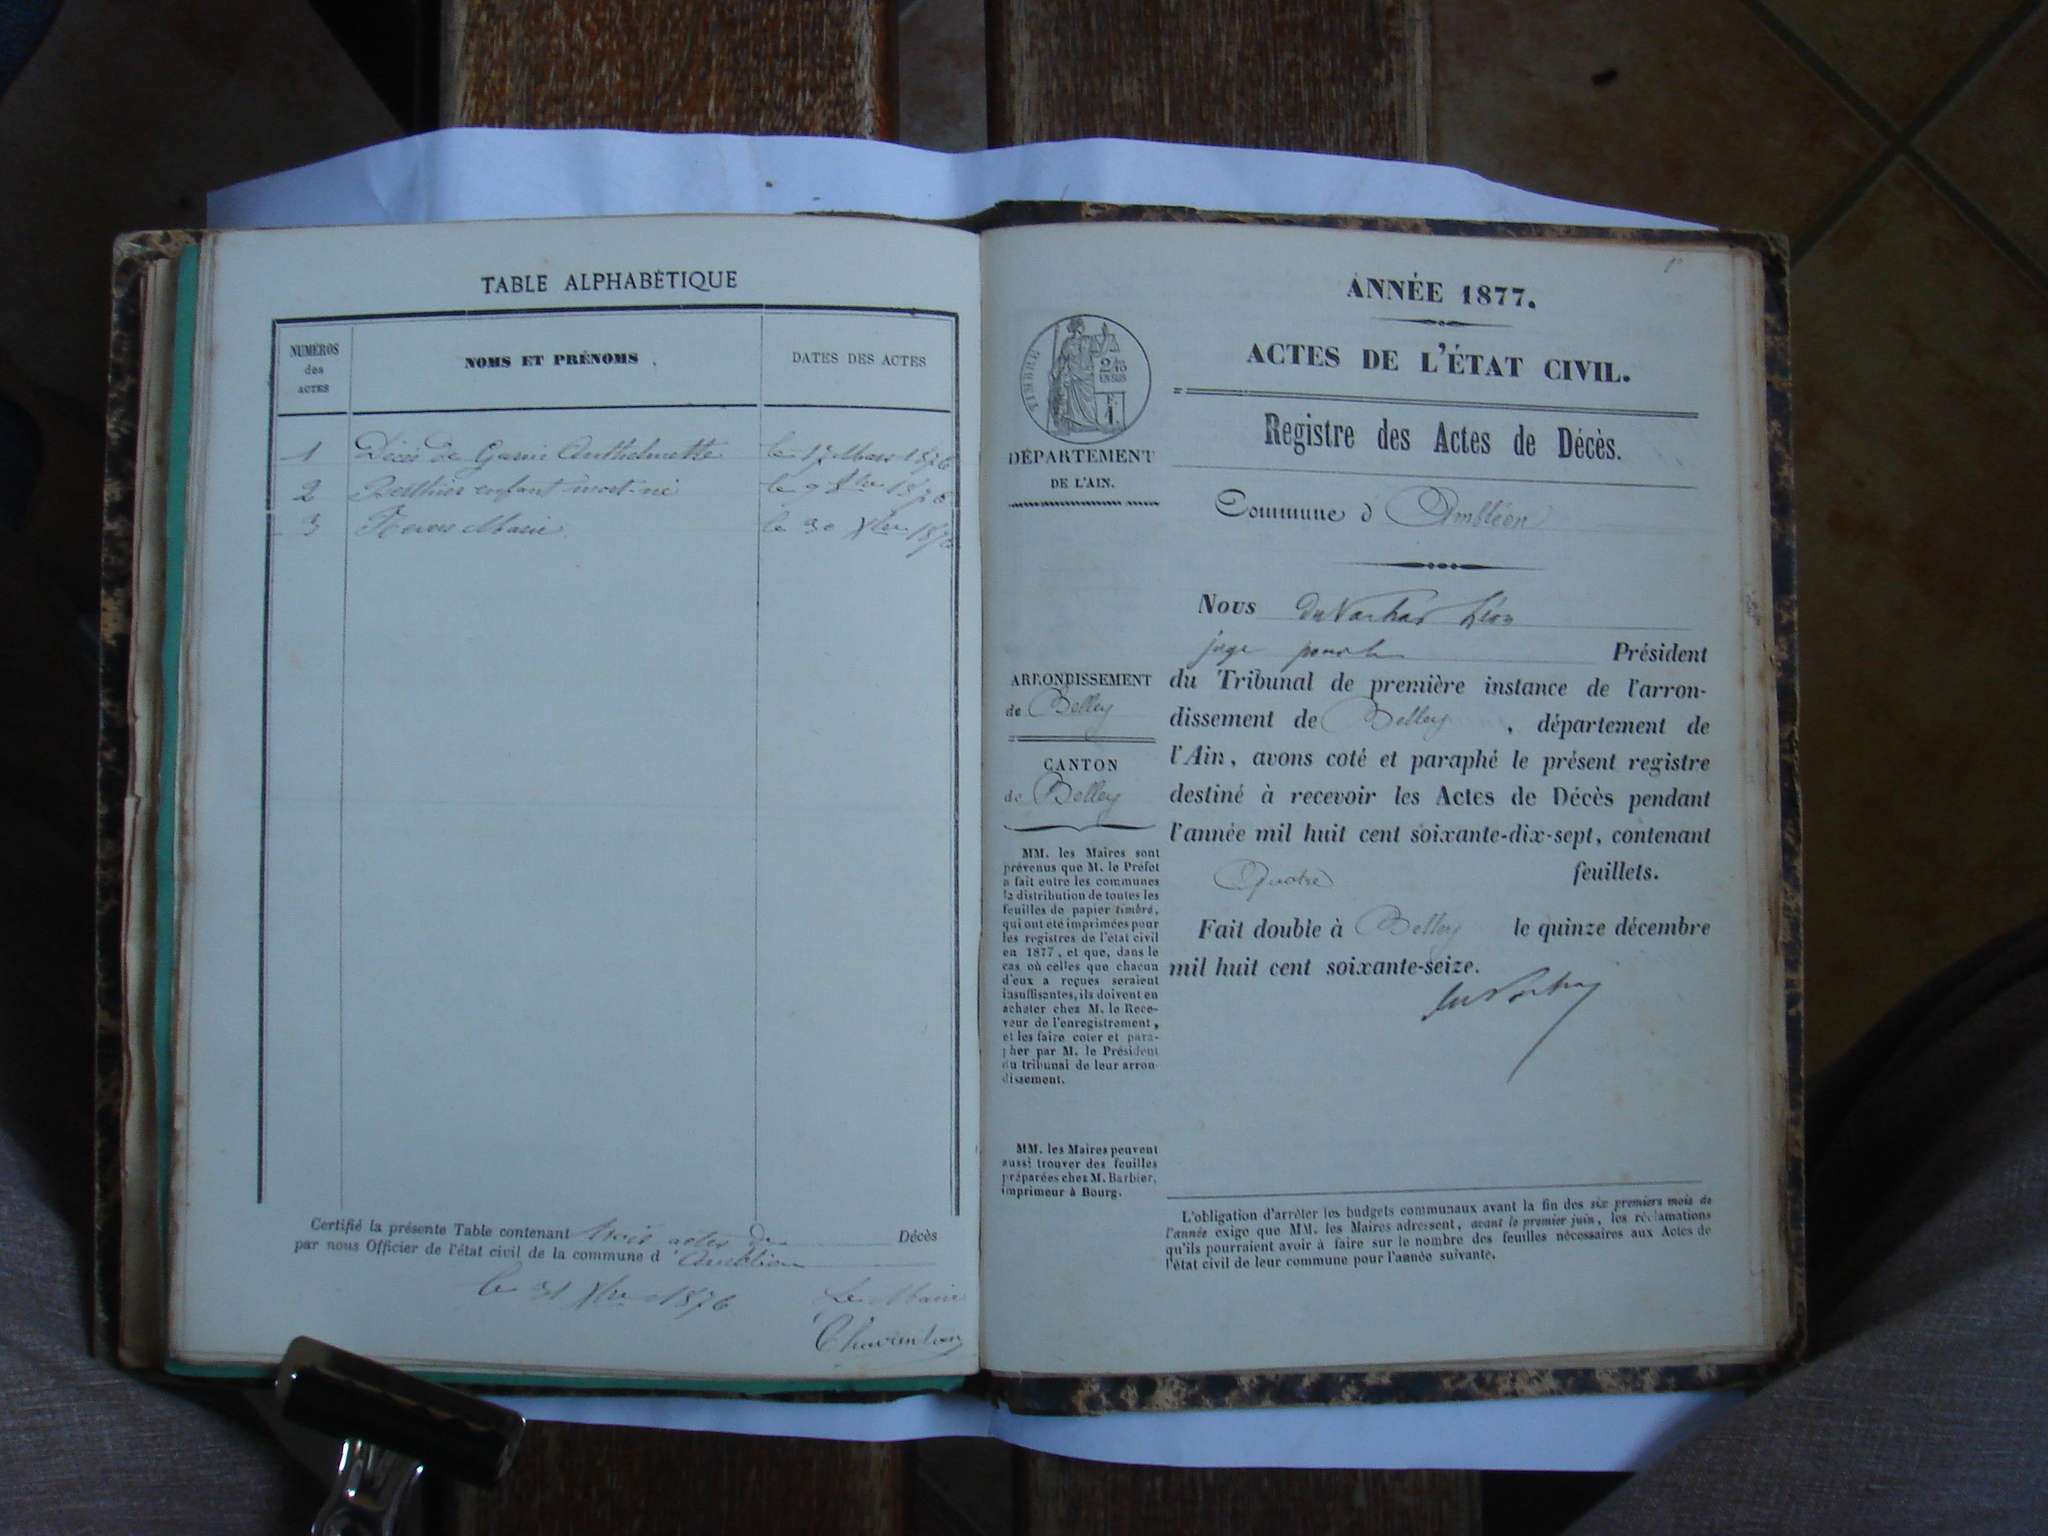 TABLE ALPHABÉTIQUE
NUMÉROS
des
ACTES
NOMS ET PRÉNOMS
DATES DES ACTES
1 Décès de Anthelmette le 17 Mars 1876
2 Berthier enfant mort-né le 9 8bre 1876
3 Marie le 30 Xbre 1876
Certifié la présente Table contenant trois actes de Décès
par nous Officier de l'état civil de la commune d'Ambléon
le 31 Xbre 1876
Le Maire
ANNÉE 1877.
ACTES DE L'ÉTAT CIVIL.
Registre des Actes de Décès.
TIMBRE
2/10
EN SUS
F.
1.
DÉPARTEMENT
DE L'AIN.
Commune d'Ambléon
ARRONDISSEMENT
de Belley
CANTON
de Belley
MM. les Maires sont
prévenus que M. le Préfet
a fait entre les communes
la distribution de toutes les
feuilles de papier timbré,
qui ont été imprimées pour
les registres de l'état civil
en 1877, et que, dans le
cas où celles que chacun
d'eux a reçues seraient
insuffisantes, ils doivent en
acheter chez M. le Rece-
veur de l'enregistrement,
et les faire coter et para-
pher par M. le Président
du tribunal de leur arron-
dissement.
MM. les Maires peuvent
aussi trouver des feuilles
préparées chez M. Barbier,
imprimeur à Bourg.
Nous Léon
juge pour le Président
du Tribunal de première instance de l'arron-
dissement de Belley, département de
l'Ain, avons coté et paraphé le présent registre
destiné à recevoir les Actes de Décès pendant
l'année mil huit cent soixante-dix-sept, contenant
Quatre feuillets.
Fait double à Belley le quinze décembre
mil huit cent soixante-seize.
L'obligation d'arrêter les budgets communaux avant la fin des six premiers mois de
l'année exige que MM. les Maires adressent, avant le premier juin, les réclamations
qu'ils pourraient avoir à faire sur le nombre des feuilles nécessaires aux Actes de
l'état civil de leur commune pour l'année suivante.